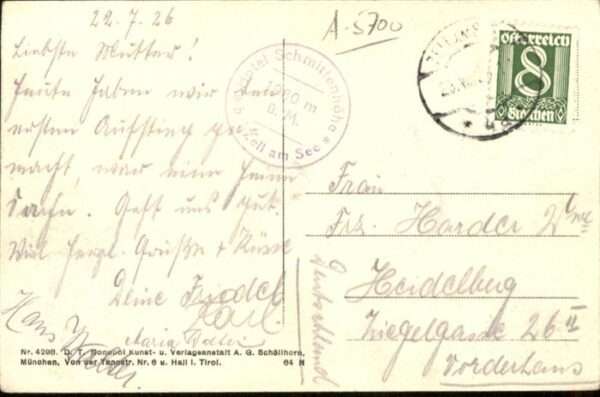 22.7.26
A-5700
Liebste Mutter!
Heute haben wir den
ersten Aufstieg ge-
macht, war eine
Sache. Geht uns gut.
Viel herzl. Grüße + Küsse
Deine Friedel
Karl
Hans
Maria
Berghotel Schmittenhöhe
Zell am See
Österreich
8
Groschen
Frau
Frz. Harder Wwe
Heidelberg
Ziegelgasse 26 II
Vorderhaus
Deutschland
Nr. 4298. D. T. Monopol Kunst- u. Verlagsanstalt A. G. Schöllhorn,
München, Von der Tannstr. Nr. 6 u. Hall i. Tirol.